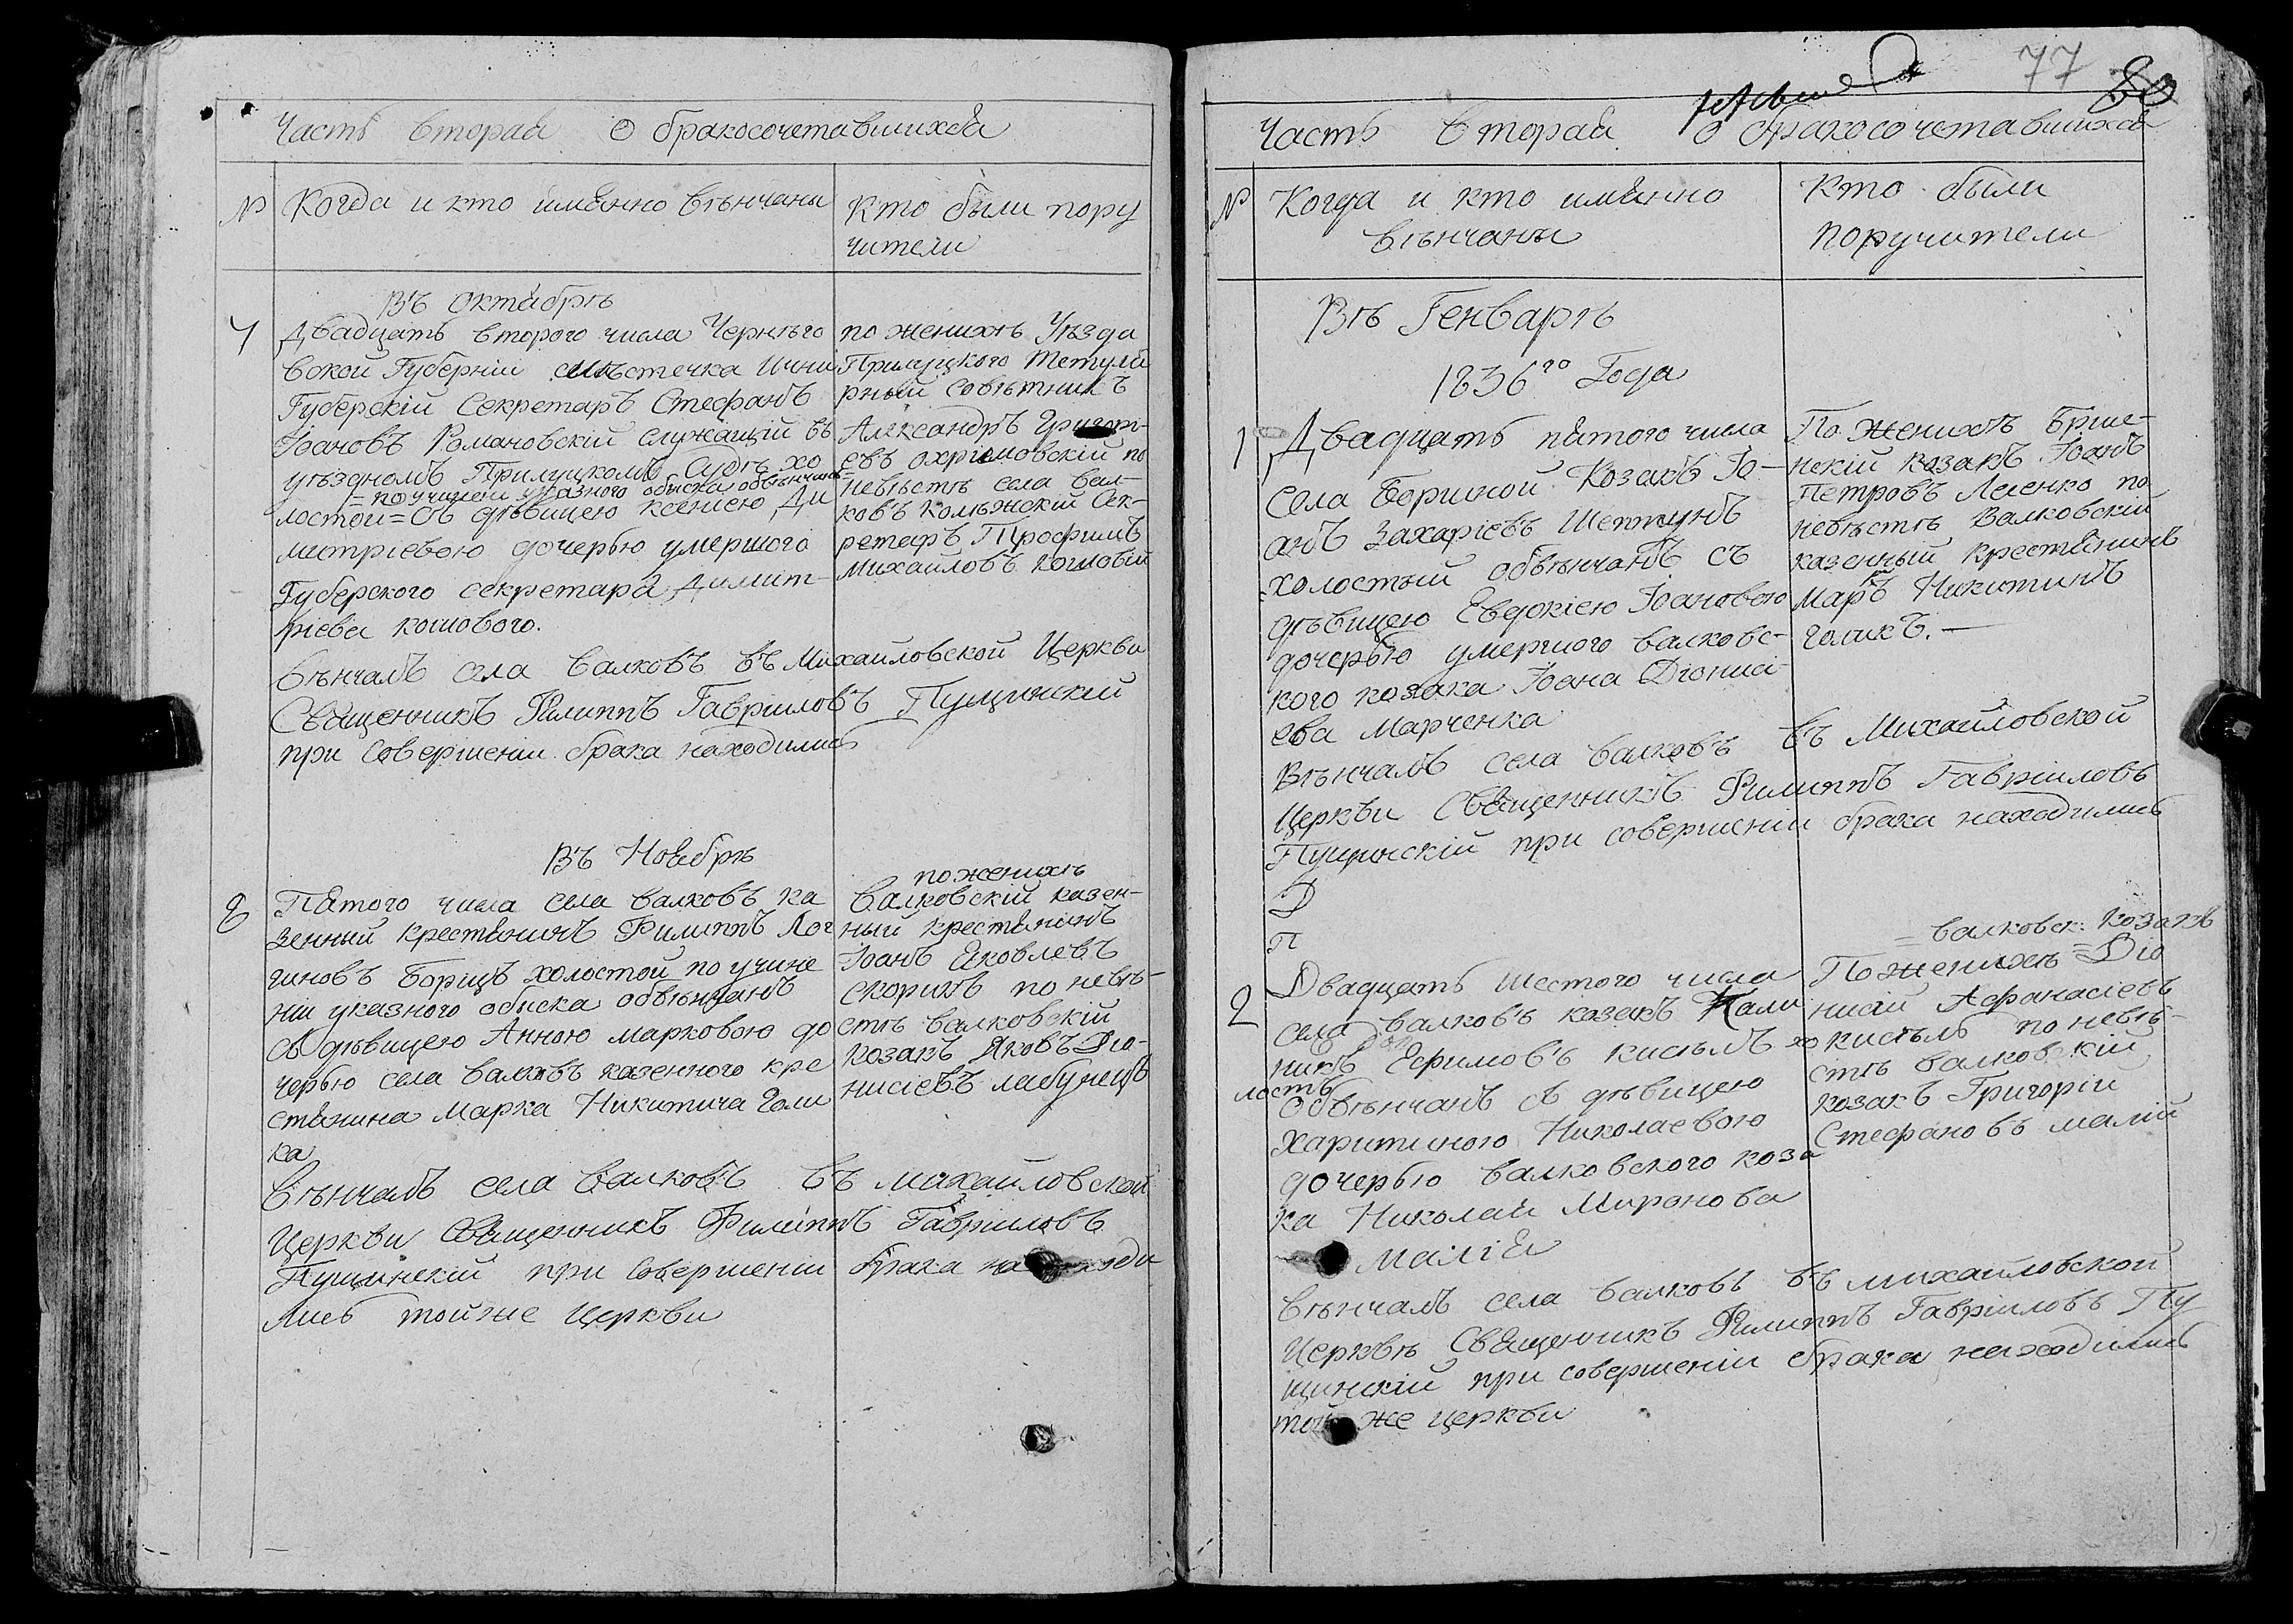 Часть вторая О бракосочетавшихся
№
Когда и кто имянно вѣнчаны
Кто были пору
чители
Въ Октябрѣ
7
Двадцать второго числа Чернѣго
вской Губерніи мѣстечка Ични
Губерскій Секретаръ Стефанъ
Іоановъ Романовскій служащій въ
уѣздномъ Прилуцкомъ Судѣ хо
= по учиненіи указного обыска обвѣнчанъ
лостой = съ дѣвицею Ксеніею Ди
митріевою дочерью умершого
Губерского секретара Димит-
ріева кошового.
по женихѣ Уѣзда
Прилуцкого Тетуля
рный совѣтникъ
Александръ Григорі-
евъ охрімовскій по
невѣстѣ села Вал-
ковъ Колѣжскій Сек-
ретаръ Трофимъ
Михайловъ кошовій
вѣнчалъ села валковъ въ Михайловской Церкви
Священникъ Филиппъ Гавріиловъ Пущинскій
при совершеніи брака находились
Въ Ноябрѣ
8
Пятого числа села валковъ ка
зенный крестянинъ Филиппъ Лог
гиновъ Борщъ холостой по учине
ніи указного обыска обвѣнчанъ
съ дѣвицею Анною марковою до
черью села валковъ казенного кре
стянина Марка Никитича Голи
ка
по женихѣ
валковскій казен-
ный крестянинъ
Іоанъ Яковлевъ
скорикъ по невѣ-
стѣ валковскій
козакъ Яковъ Діо-
нисіевъ лабунецъ
вѣнчалъ села валковъ въ михайловской
Церкви Священникъ Филиппъ Гавріиловъ
Пущинскій при совершеніи брака находи
лись тойже Церкви
77
80
Часть вторая о бракосочетавшихся
№
Когда и кто имянно
вѣнчаны
Кто были
поручители
Въ Генварѣ
1836го Года
1
Двадцать пятого числа
села Бориной Козакъ Іо-
анъ Захаріевъ Шептунъ
холостый обвѣнчанъ съ
дѣвицею Евдокіею Іоановою
дочерью умершого валковс-
кого козака Іоана Діониси
ева Марченка
По женихѣ Брше-
нскій козакъ Іоанъ
Петровъ Леленко по
невѣстѣ Валковскій
казенный крестянинъ
Маркъ Никитинъ
голикъ.—
Вѣнчалъ села валковъ въ Михайловской
Церкви Священникъ Филиппъ Гавріиловъ
Пущинскій при совершеніи брака находились
Д
П
2
Двадцать шестого числа
села валковъ козакъ Кали
никъ Ефимовъ кисѣль хо
лостъ
обвѣнчанъ съ дѣвицею
Харитиною Николаевою
дочерью валковского коза
ка Николая Миронова
Малія
= валковск: козакъ
По женихѣ = Діо
нисій Афанасіевъ
кисѣль по невѣ-
стѣ валковскій
козакъ Григорій
Стефановъ малій
вѣнчалъ села валковъ въ михайловской
Церквѣ Священникъ Филиппъ Гавріиловъ Пу
щинскій при совершеніи брака находились
той же церкви